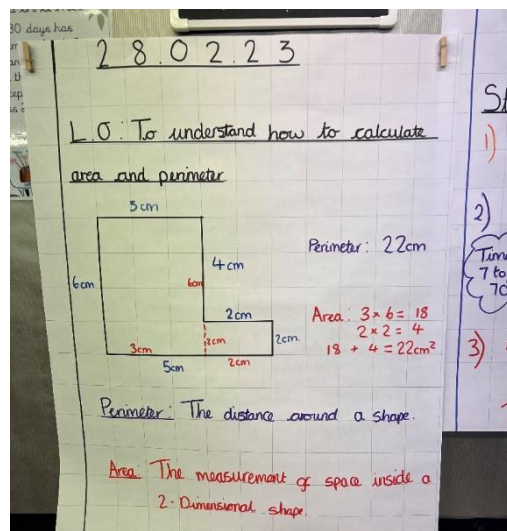 30 days has
28.02.23
L.O: To understand how to calculate
area and perimeter
3cm
6cm
4cm
6cm
2cm
2cm
2cm.
3cm
5cm
2cm
Perimeter: 22cm
Area: 3 × 6 = 18
2 × 2 = 4
18 + 4 = 22cm²
Perimeter: The distance around a shape.
Area: The measurement of space inside a
2-Dimensional shape.
1)
2)
7 to
70
3)